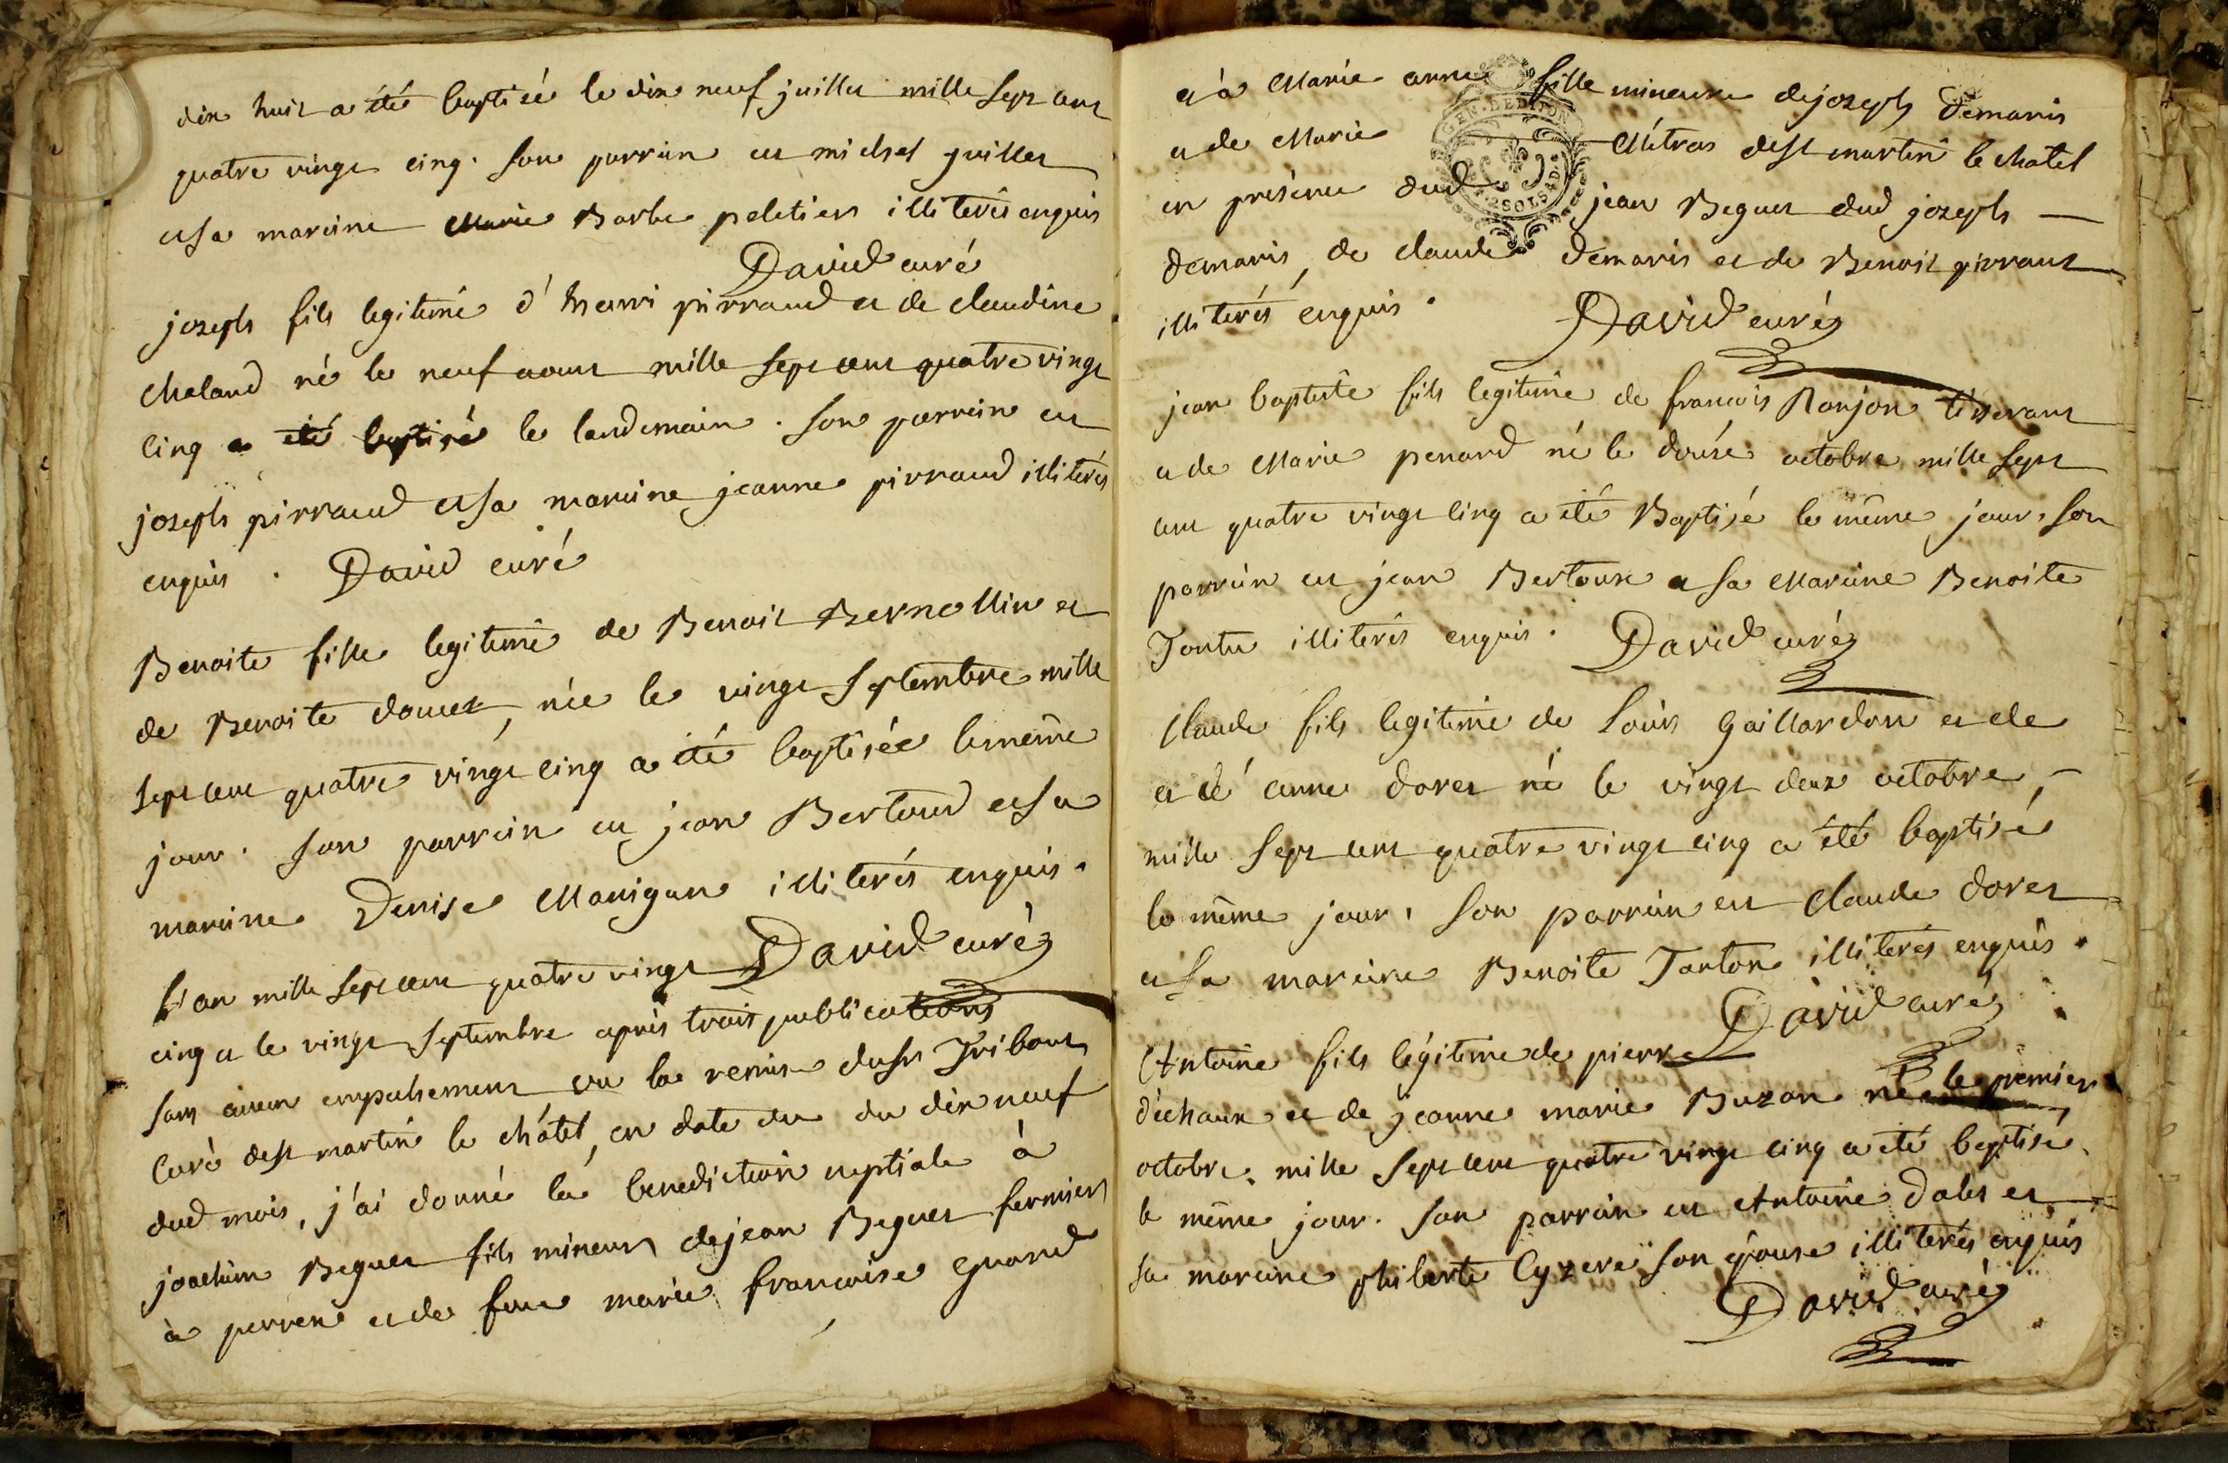 dix huit a été baptisé le dix neuf juillet mille sept cent
quatre vingt cinq. son parrain est michel guillet
et sa mareine Marie Barbe peletier illiterés enquis
David curé
joseph fils legitime d'henri pirraud et de claudine
Chaland né le neuf aout mille sept cent quatre vingt
cinq a été baptisé le landemain. son parrain est
joseph pirraud et sa mareine jeanne pirraud illiterés
enquis. David curé
Benoite fille legitime de Benoit Bernollin et
de Benoite doucet, née le vingt septembre mille
sept cent quatre vingt cinq a été baptisée le même
jour. son parrein est jean Bertoud et sa
mareine Denise Manigan illiterés enquis.
David curé
L'an mille sept cent quatre vingt
cinq et le vingt septembre après trois publications
sans aucun empechement vu la remise du sr Tribout
Curé de st martin le châtel, en date du du dix neuf
dud mois, j'ai donné la benediction nuptiale à
joachim Beguet fils mineur de jean Beguet fermier
à perren et de feue marie francoise guard
et à Marie anne fille mineure de joseph demaris
et de Marie Métras de st martin le chatel
en présence dud jean Beguet dud joseph
demaris, de claude demaris et de Benoit pirraut
illiterés enquis.
David curé
GEN. DE DIJON
2 SOLS 4 D.
jean baptiste fils legitime de francois Ronjon tisserant
et de Marie penard né le douse octobre mille sept
cent quatre vingt cinq a été Baptisé le même jour. son
parrain est jean Bertoux et sa Mareine Benoite
Tontu illiterés enquis. David curé
Claude fils legitime de Louis Gaillardon et de
et de anne doret né le vingt deux octobre,
mille sept cent quatre vingt cinq a été baptisé
le même jour, son parrain est Claude doret
et sa mareine Benoite Tonton illiterés enquis.
David curé
Antoine fils légitime de pierre
déchaux et de jeanne marie Buzon né le premier
octobre mille sept cent quatre vingt cinq a été baptisé
le même jour. son parrain est Antoine dales et
sa mareine philiberte Cyzere son épouse illiterés enquis
David curé